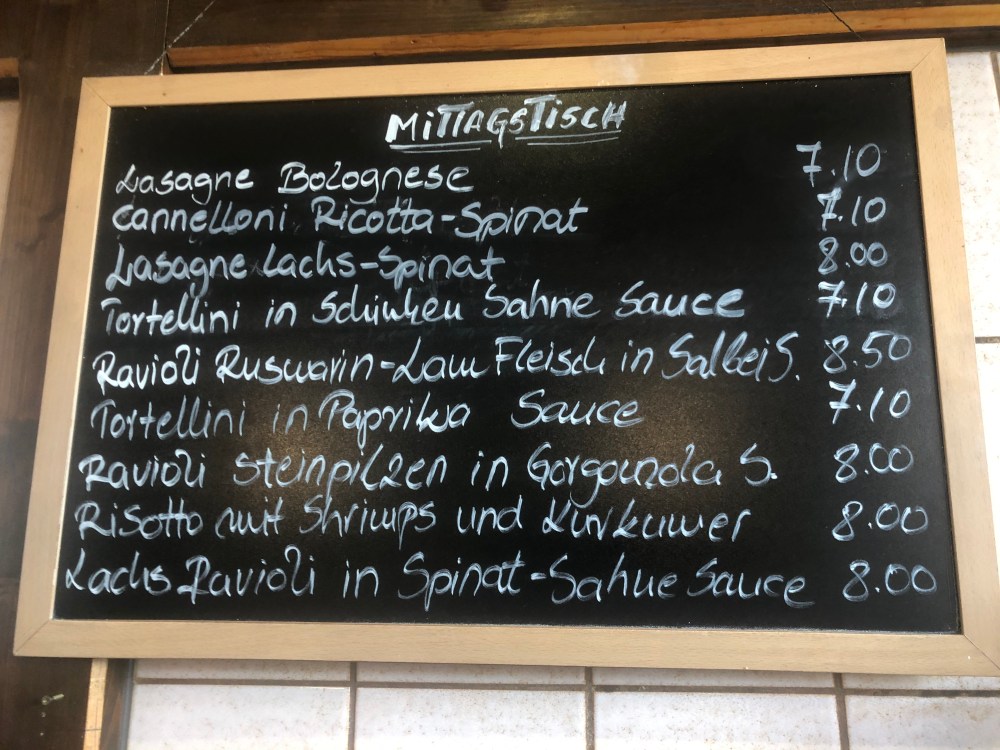 MITTAGSTISCH
Lasagne Bolognese 7.10
Cannelloni Ricotta-Spinat 7.10
Lasagne Lachs-Spinat 8.00
Tortellini in Schinken Sahne Sauce 7.10
Ravioli Rusmarin-Lam Fleisch in Salbei S. 8.50
Tortellini in Paprika Sauce 7.10
Ravioli Steinpilzen in Gorgonzola S. 8.00
Risotto mit Shrimps und Kurkumer 8.00
Lachs Ravioli in Spinat-Sahne Sauce 8.00